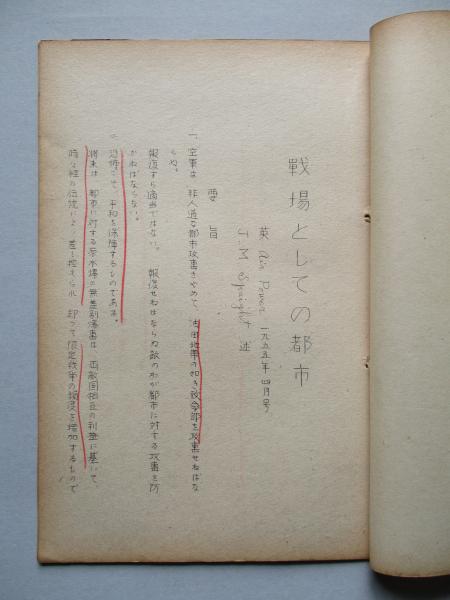 戰場としての都市
英 Air Power 一九五五年四月号
J.M Spaight 述
要旨
一、空軍は 非人道な都市攻撃をやめて 油田地帯の如き致命部を攻撃せねばな
らぬ。
報復すら適当ではない。 報復せねばならぬ敵のわが都市に対する攻撃を防
がねばならない。
二、恐怖こそ、平和を保障するものである。
将来は 都市に対する原水爆の無差別爆撃は 両敵国相互の利益に基いて、
暗々裡の伝統により差し控えられ 却つて限定戦争の頻度を増加するもので